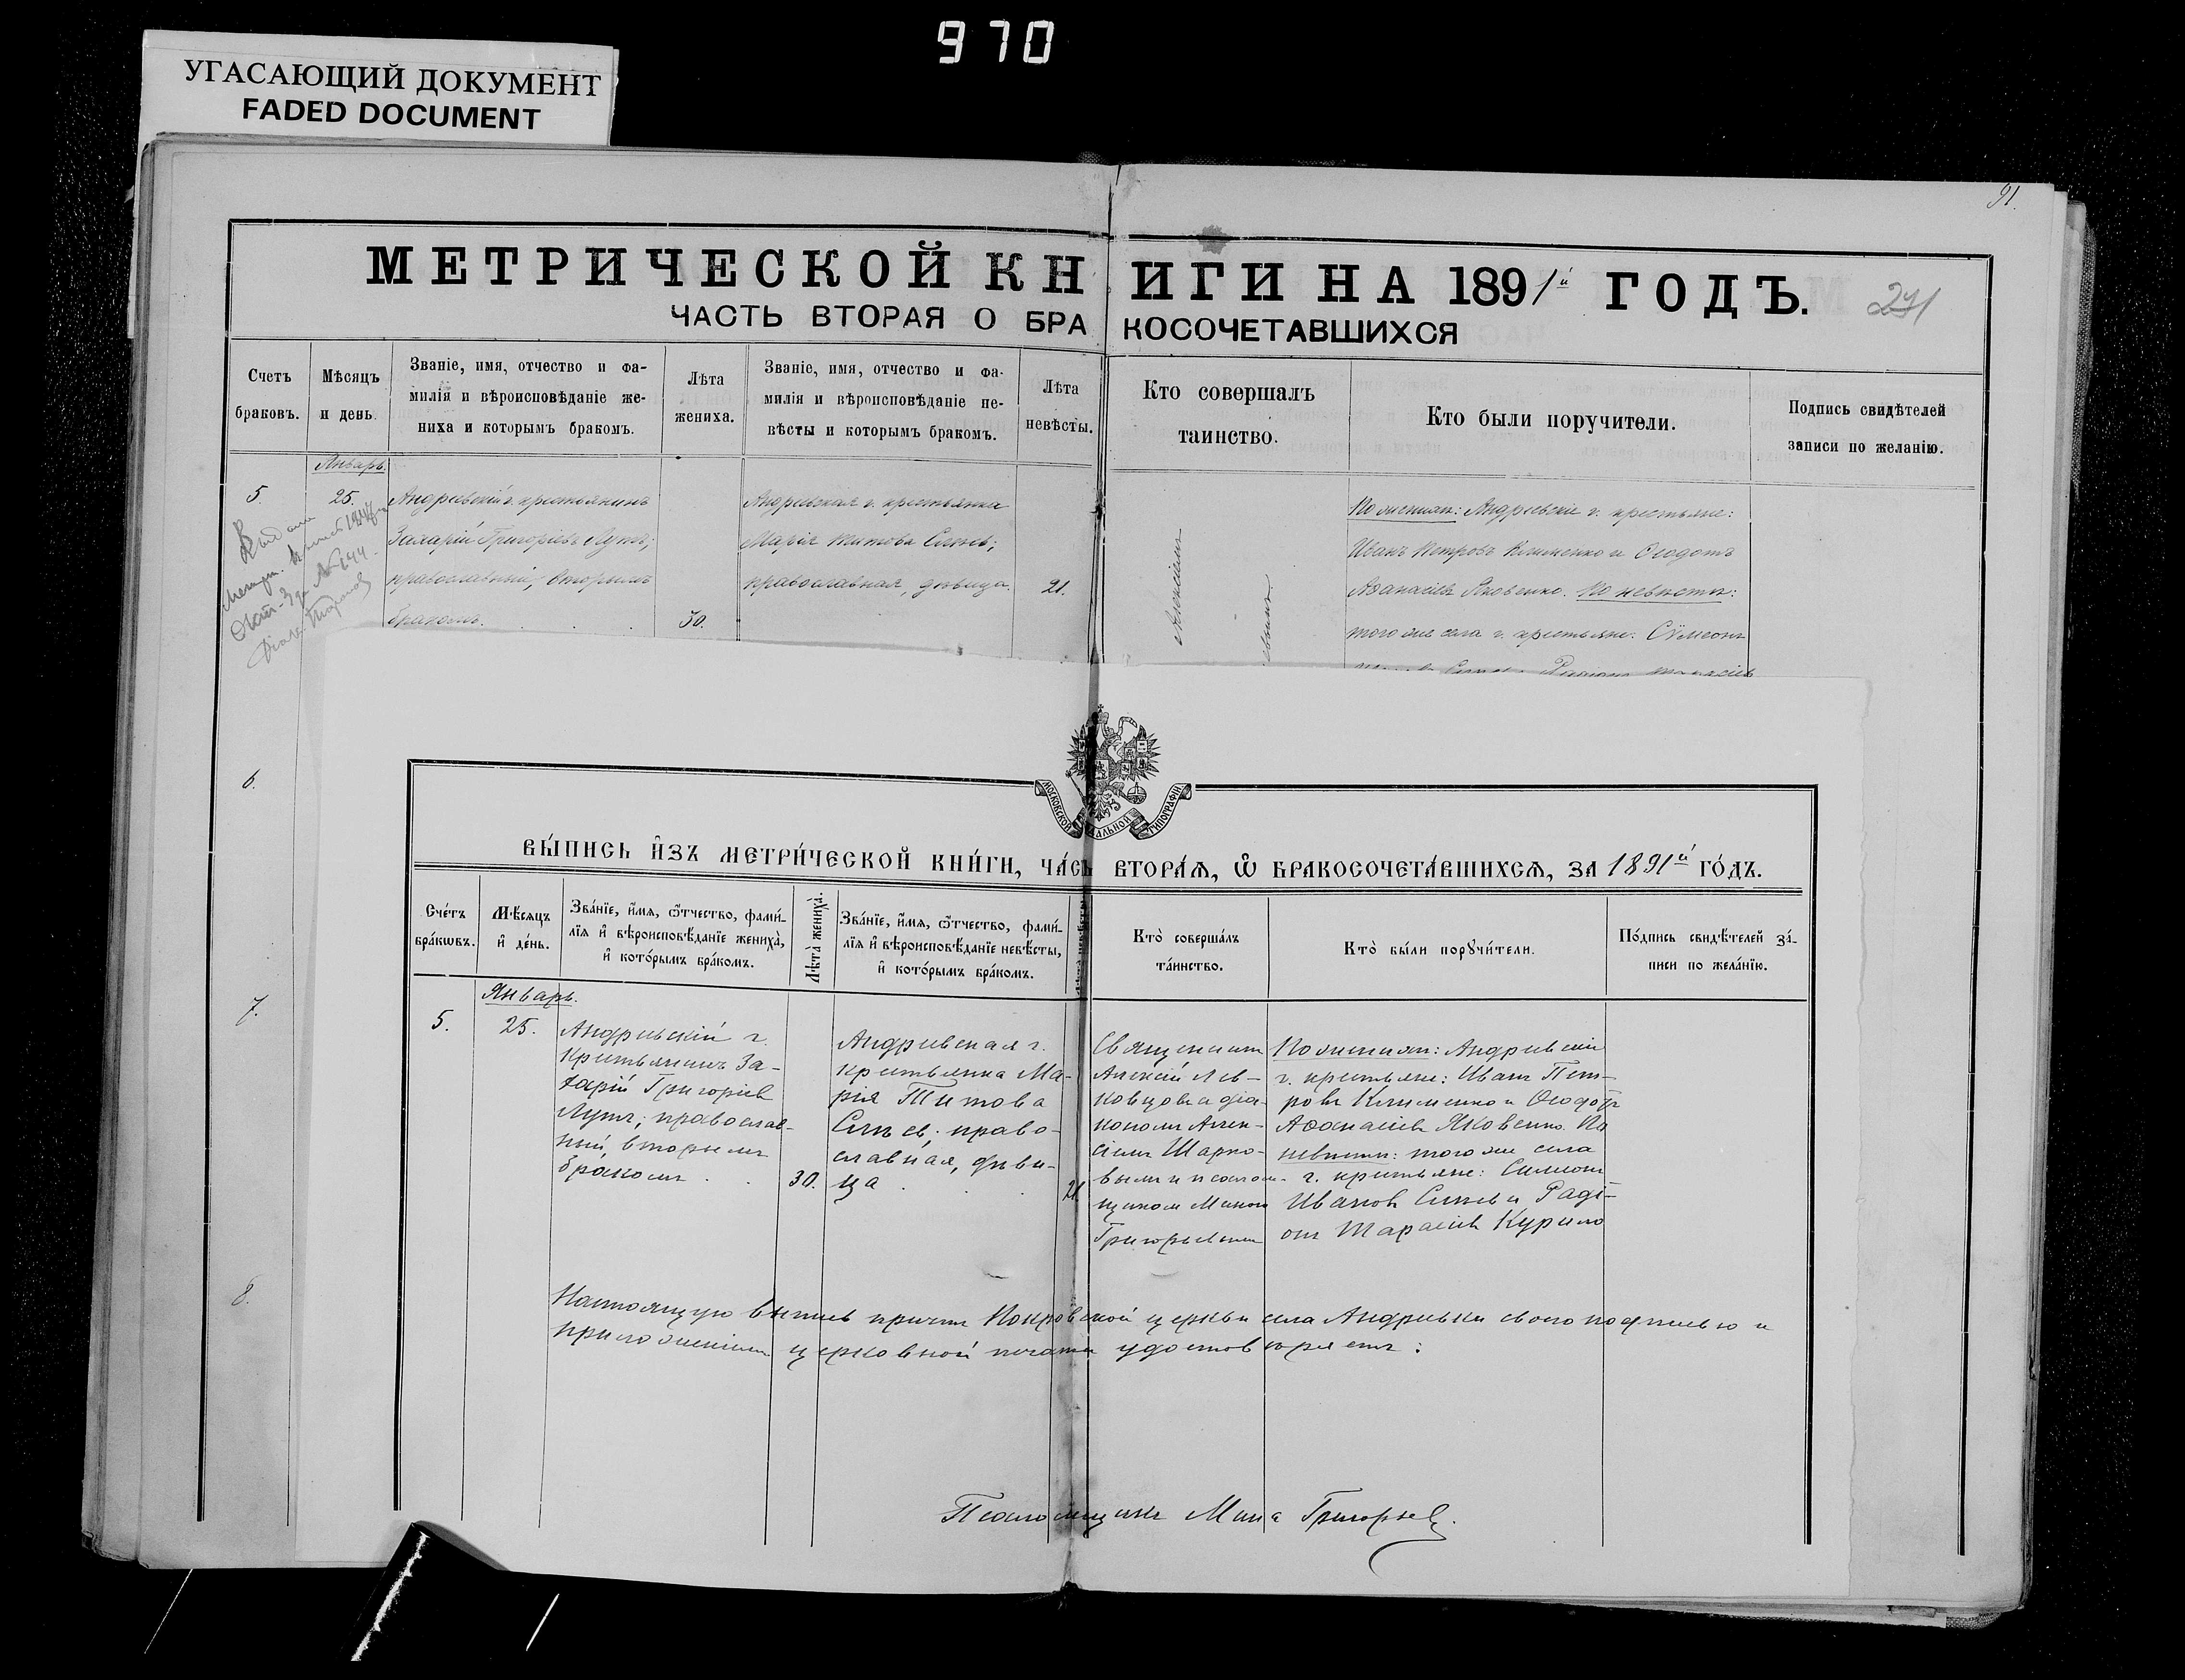 970
УГАСАЮЩИЙ ДОКУМЕНТ
FADED DOCUMENT
91.
МЕТРИЧЕСКОЙ КНИГИ НА 1891й ГОДЪ.
291
ЧАСТЬ ВТОРАЯ О БРАКОСОЧЕТАВШИХСЯ
Счетъ браковъ.
Мѣсяцъ и день.
Званіе, имя, отчество и фа-
милія и вѣроисповѣданіе же-
ниха и которымъ бракомъ.
Лѣта жениха.
Званіе, имя, отчество и фа-
милія и вѣроисповѣданіе не-
вѣсты и которымъ бракомъ.
Лѣта невѣсты.
Кто совершалъ
таинство.
Кто были поручители.
Подпись свидѣтелей
записи по желанію.
Январь.
5.
25.
Андреевскій г. крестьянинъ
Захарій Григоріевъ Лутъ;
православный, вторымъ
бракомъ.
30.
Андреевская г. крестьянка
Марія Титова
православная, дѣвица.
21.
По женихѣ: Андреевскіе г. крестьяне:
Иванъ Петровъ Клименко и Ѳеодотъ
Аѳанасіевъ Яковенко. По невѣстѣ:
того же села г. крестьяне: Сѵмеонъ
6.
7.
8.
МОСКОВСКОЙ
ТИПОГРАФІИ
ВЫ́ПИСЬ И҆ЗЪ МЕТРИ́ЧЕСКОЙ КНИ́ГИ, ЧА́СТЬ ВТОРА́Ѧ, Ѽ БРАКОСОЧЕТА́ВШИХСѦ, ЗА 1891й ГО́ДЪ.
Сче́тъ
бра́кѡвъ.
Мѣ́сяцъ
и҆ де́нь.
Зва́нїе, и҆́мѧ, ѻ҆́тчество, фами́-
лїѧ и҆ вѣроисповѣ́данїе жениха̀,
и҆ кото́рымъ бра́комъ.
Лѣ́та жениха̀.
Зва́нїе, и҆́мѧ, ѻ҆́тчество, фами́-
лїѧ и҆ вѣроисповѣ́данїе невѣ́сты,
и҆ кото́рымъ бра́комъ.
Кто̀ соверша́лъ
та́инство.
Кто̀ бы́ли порꙋчи́тели.
По́дпись свидѣ́телей за́-
писи по жела́нїю.
Январь.
5.
25.
Андреевскій г.
крестьянинъ За-
харій Григоріевъ
Лутъ; православ-
ный, вторымъ
бракомъ
30.
Андреевская г.
крестьянка Ма-
рія Титова
право-
славная, дѣви-
ца
21.
Священникъ
Алексій Лев-
діа-
кономъ Алек-
сіемъ Шарко-
вымъ и псалом-
щикомъ Миною
Григорьевымъ
По женихѣ: Андреевскіе
г. крестьяне: Иванъ Пет-
ровъ Клименко и Ѳеодотъ
Аѳанасіевъ Яковенко. По
невѣстѣ: того же села
г. крестьяне: Симеонъ
Ивановъ и Раді-
онъ Тарасіевъ Курило
Настоящую выпись причтъ Покровской церкви села Андреевки своею подписью и
приложеніемъ церковной печати удостовѣряетъ:
Псаломщикъ Мина Григорьевъ.